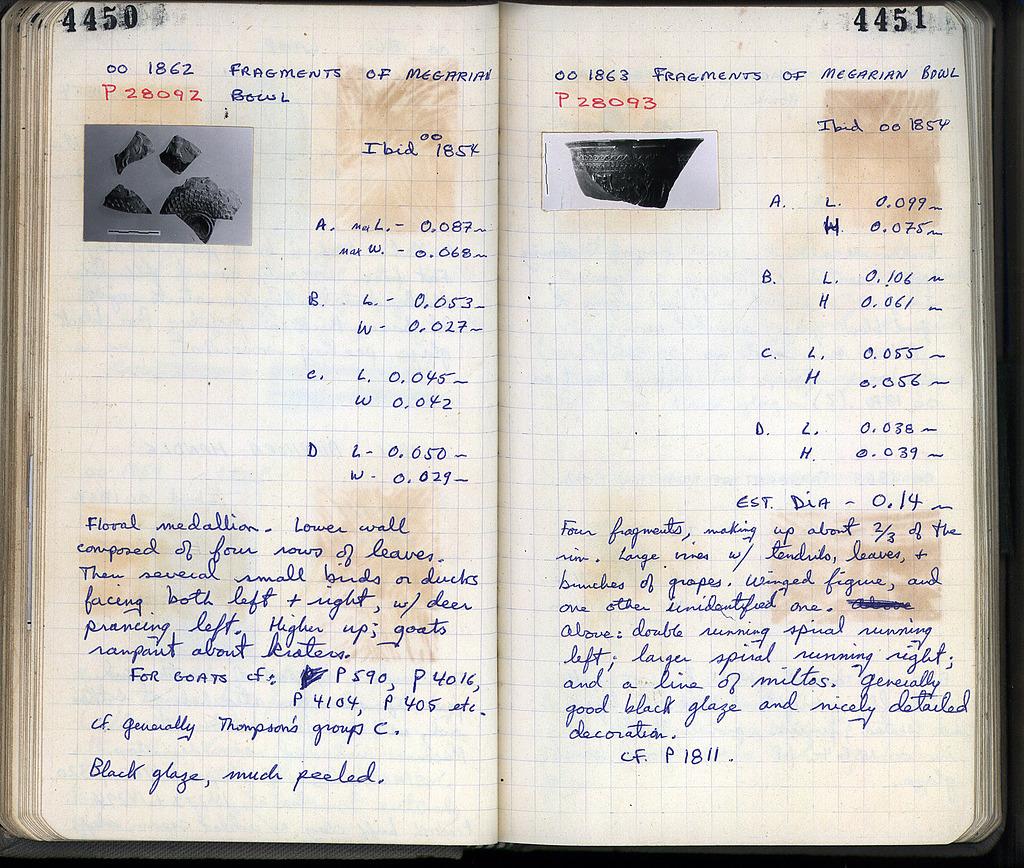 4450
OO 1862 FRAGMENTS OF MEGARIAN
P 28092 BOWL
Ibid OO 1854
A. max L. - 0.087 m
max W. - 0.068 m
B. L. - 0.053 m
W - 0.027 m
C. L. 0.045 m
W 0.042
D L - 0.050 m
W - 0.029 m
Floral medallion. Lower wall
composed of four rows of leaves.
Then several small birds or ducks
facing both left + right, w/ deer
prancing left. Higher up; goats
rampant about kraters.
FOR GOATS cf: P 590, P 4016,
P 4104, P 405 etc.
cf. generally Thompson's group C.
Black glaze, much peeled.
4451
OO 1863 FRAGMENTS OF MEGARIAN BOWL
P 28093
Ibid OO 1854
A. L. 0.099 m
H. 0.075 m
B. L. 0.106 m
H 0.061 m
C. L. 0.055 m
H 0.056 m
D. L. 0.038 m
H. 0.039 m
EST. DIA - 0.14 m
Four fragments, making up about 2/3 of the
rim. Large vines w/ tendrils, leaves, +
bunches of grapes. Winged figure, and
one other unidentified one. above
Above: double running spiral running
left; larger spiral running right;
and a line of miltos. Generally
good black glaze and nicely detailed
decoration.
cf. P 1811.